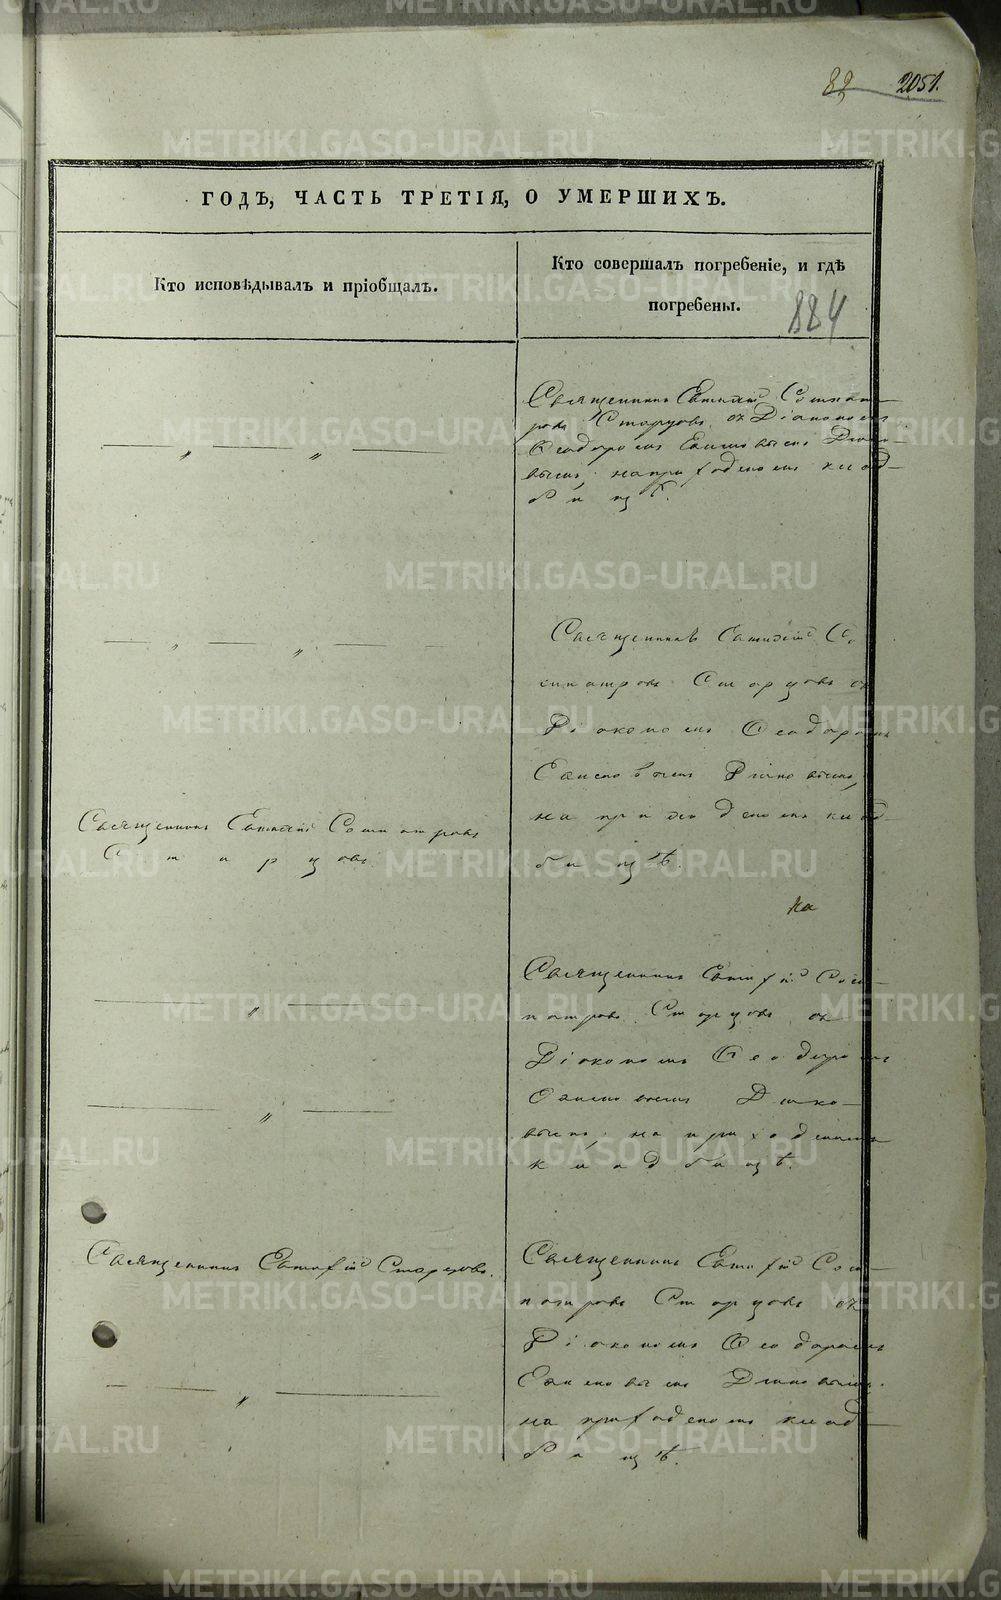 89 2051.
ГОДЪ, ЧАСТЬ ТРЕТІЯ, О УМЕРШИХЪ.
Кто исповѣдывалъ и пріобщалъ.
Кто совершалъ погребеніе, и гдѣ
погребены.
884
Священникъ Евтихій Сосипат-
ровъ Старцовъ съ Діакономъ
Ѳеодоромъ
вымъ, на приходскомъ клад-
бищѣ.
Священникъ Евтихій Со
сипатровъ Старцовъ съ
Діакономъ Ѳеодоромъ
на приходскомъ клад-
бищѣ.
Священникъ Евтихій Сосипатровъ
Старцовъ.
На
Священникъ Евтихій Соси-
патровъ Старцовъ съ
Діакономъ Ѳеодоромъ
вымъ, на приходскомъ
кладбищѣ.
Священникъ Евтихій Старцовъ.
Священникъ Евтихій Соси-
патровъ Старцовъ съ
Діакономъ Ѳеодоромъ
на приходскомъ клад-
бищѣ.
METRIKI.GASO-URAL.RU